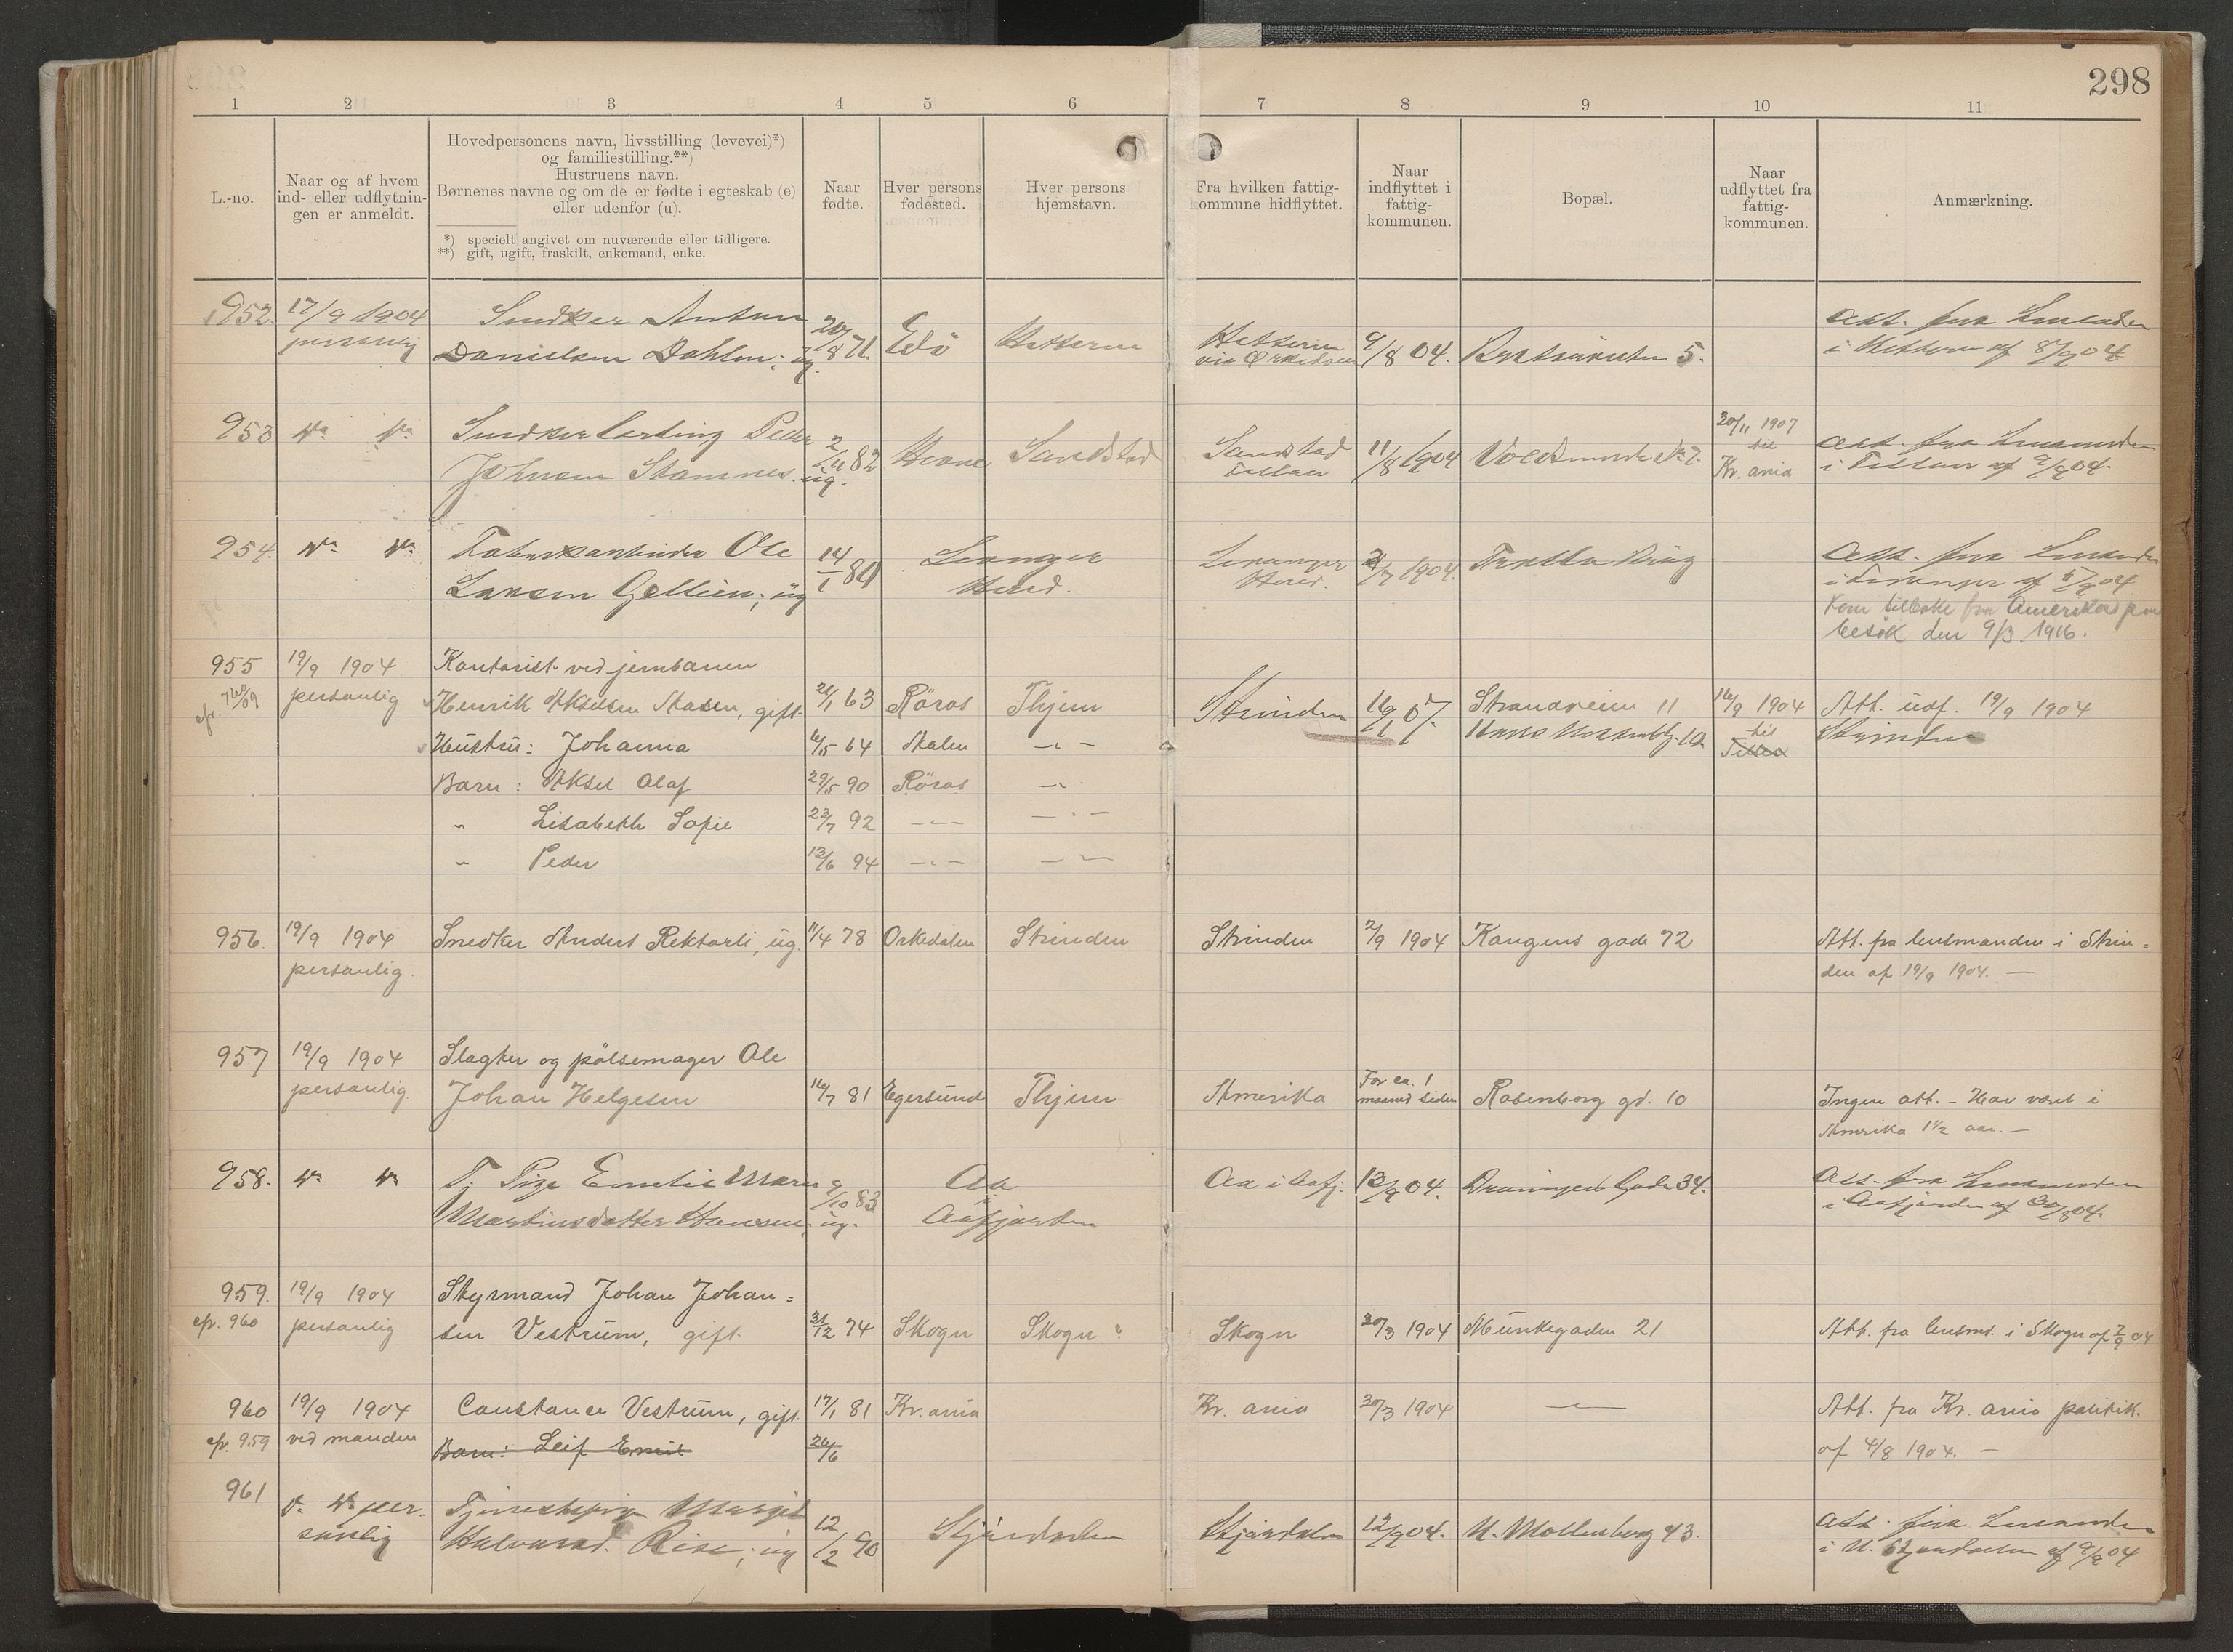 298
1 2 3 4 5 6 7 8 9 10 11
L.-no.
Naar og af hvem
ind- eller udflytnin-
gen er anmeldt.
Hovedpersonens navn, livsstilling (levevei)*)
og familiestilling.**)
Hustruens navn.
Børnenes navne og om de er fødte i egteskab (e)
eller udenfor (u).
*) specielt angivet om nuværende eller tidligere.
**) gift, ugift, fraskilt, enkemand, enke.
Naar
fødte.
Hver persons
fødested.
Hver persons
hjemstavn.
Fra hvilken fattig-
kommune hidflyttet.
Naar
indflyttet i
fattig-
kommunen.
Bopæl.
Naar
udflyttet fra
fattig-
kommunen.
Anmærkning.
952. 17/9 1904 Snedker Anton 20/8 71 Edø Hitteren Hitteren 9/8 04. 5. Att. fra Lensmanden
personlig Danielsen Dahlen; ug. via Orkedalen i Hitteren af 8/9 04
953 Da Da Snedkerlærling Peder 2/11 82 Hevne Sandstad Sandstad 11/8 1904 20/11 1907 Att. fra Lensmanden
Johnsen Stamnes. ug. Fillan til Kr.ania i Fillan af 9/9 04.
954. Da Da Fabrikarbeider Ole 14/1 80 Levanger Levanger /7 1904. Trolla Brug Att. fra Lensmanden
Larsen Gellein; ug Herred. Herred. i Levanger af 04
Kom tilbake fra Amerika paa
besøk den 9/3 1916.
955 19/9 1904 Kontorist ved jernbanen
cfr. 760/09 personlig Henrik Akselsen Aasen, gift 21/1 63 Röros Thjem Strinden 16/9 07. Strandveien 11 16/9 1904 Att. udf. 19/9 1904
Hustru: Johanna 16/5 64 Aalen - " - til Strinden
Barn: Aksel Olaf 29/5 90 Röros - "
" Lisabeth Sofie 23/7 92 - " - - " -
" Peder 13/6 94 - " - - " -
956. 19/9 1904 Snedker Anders Rektorli, ug. 11/4 78 Orkedalen Strinden Strinden 2/9 1904 Kongens gade 72 Att. fra lensmanden i Strin=
personlig. den af 19/9 1904. —
957 19/9 1904 Slagter og pölsemager Ole
personlig. Johan Helgesen 16/7 81 Egersund Thjem Amerika For ca. 1 maaned siden Rosenborg gd. 10 Ingen att. - Har været i
Amerika 1½ aar. —
958. Da Da Tj. Pige Emelie Marie 9/10 83 Aa Aa i Aafj. 13/9 04. Dronningens Gade 34. Att. fra Lensmanden
Martinusdatter Hansen; ug. Aafjorden i Aafjorden af 30/8 04.
959. 19/9 1904 Styrmand Johan Johan=
cfr. 960 personlig sen Vestrum, gift 31/12 74 Skogn Skogn ? Skogn 30/3 1904 Munkegaden 21 Att. fra lensmd. i Skogn af 7/9 04
960 19/9 1904 Constance Vestrum, gift. 17/1 81 Kr.ania Kr. ania 30/3 1904 — " — Att. fra Kr. ania politik.
cfr. 959 ved manden Barn: Leif Emil 26/6 af 4/8 1904. —
961 Da Da per- Tjenestepige Marget 12/2 90 Stjørdalen Stjørdalen 12/9 04. N. Mollenberg 43. Att. fra Lensmanden
sonlig Halvorsd. Rise; ug i N. Stjørdalen af 9/9 04